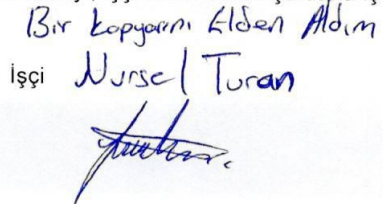 Bir kopyasını Elden Aldım
İşçi Nursel Turan